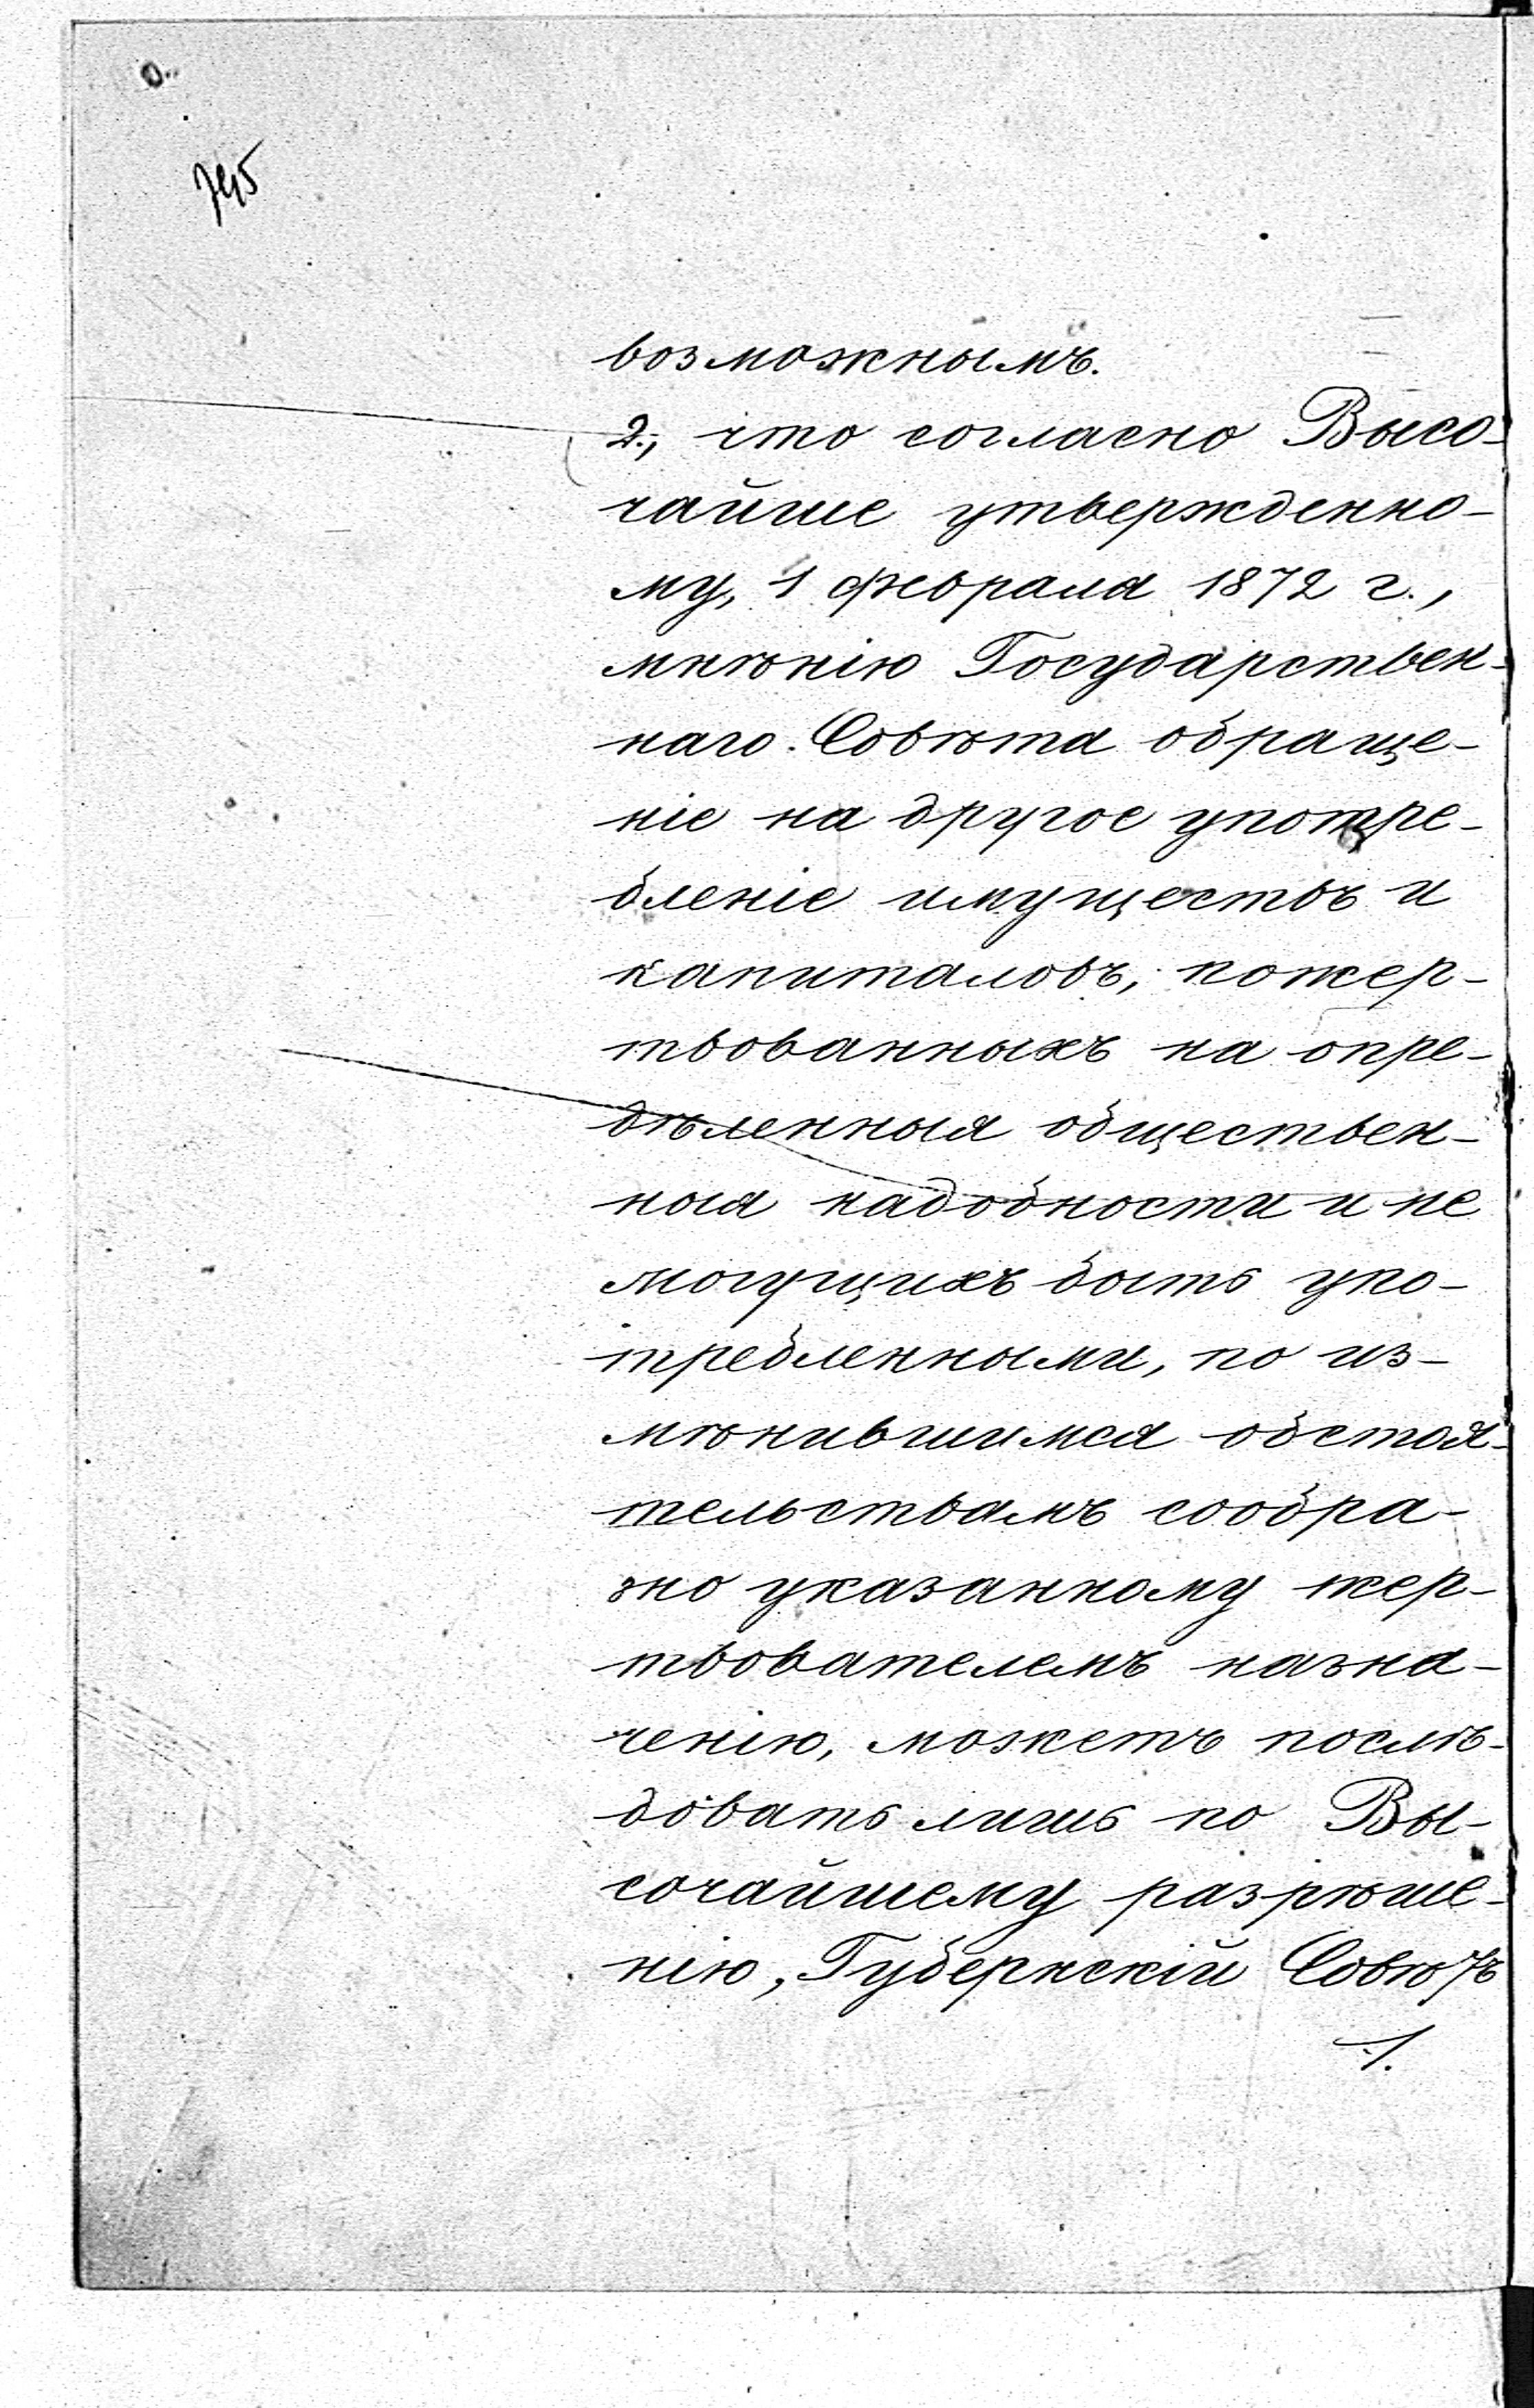 возможнымъ.
2., что согласно Высо-
чайше утвержденно-
му, 1 февраля 1872 г.,
мнѣнію Государствен-
наго Совѣта обраще-
ніе на другое употре-
бленіе имуществъ и
капиталовъ, пожер-
твованныхъ на опре-
дѣленныя обществен-
ныя надобности и не
могущихъ быть упо-
требленными, по из-
мѣнившимся обстоя-
тельствамъ сообра-
зно указанному жер-
твователемъ назна-
ченію, можетъ послѣ-
довать лишь по Вы-
сочайшему разрѣше-
нію, Губернскій Совѣтъ
1.